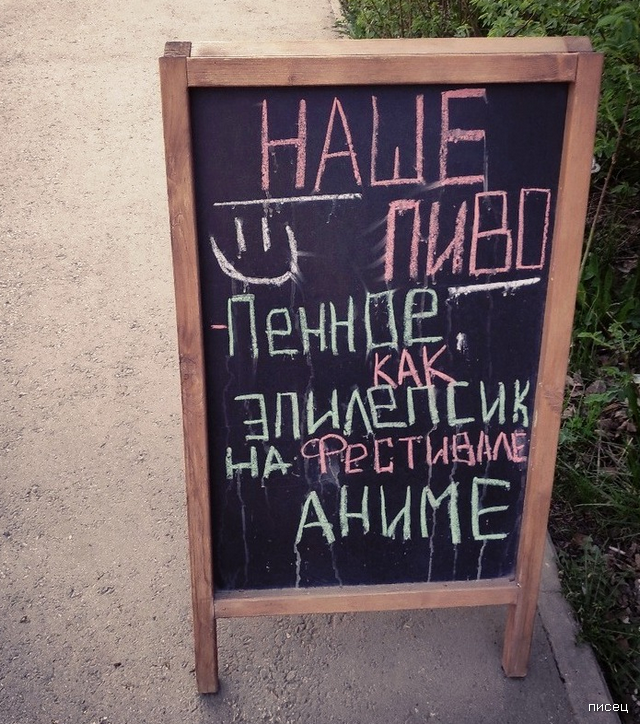 НАШЕ
ПИВО
-Пенное
КАК
ЭПИЛЕПСИК
НА ФЕСТИВАЛЕ
АНИМЕ
писец